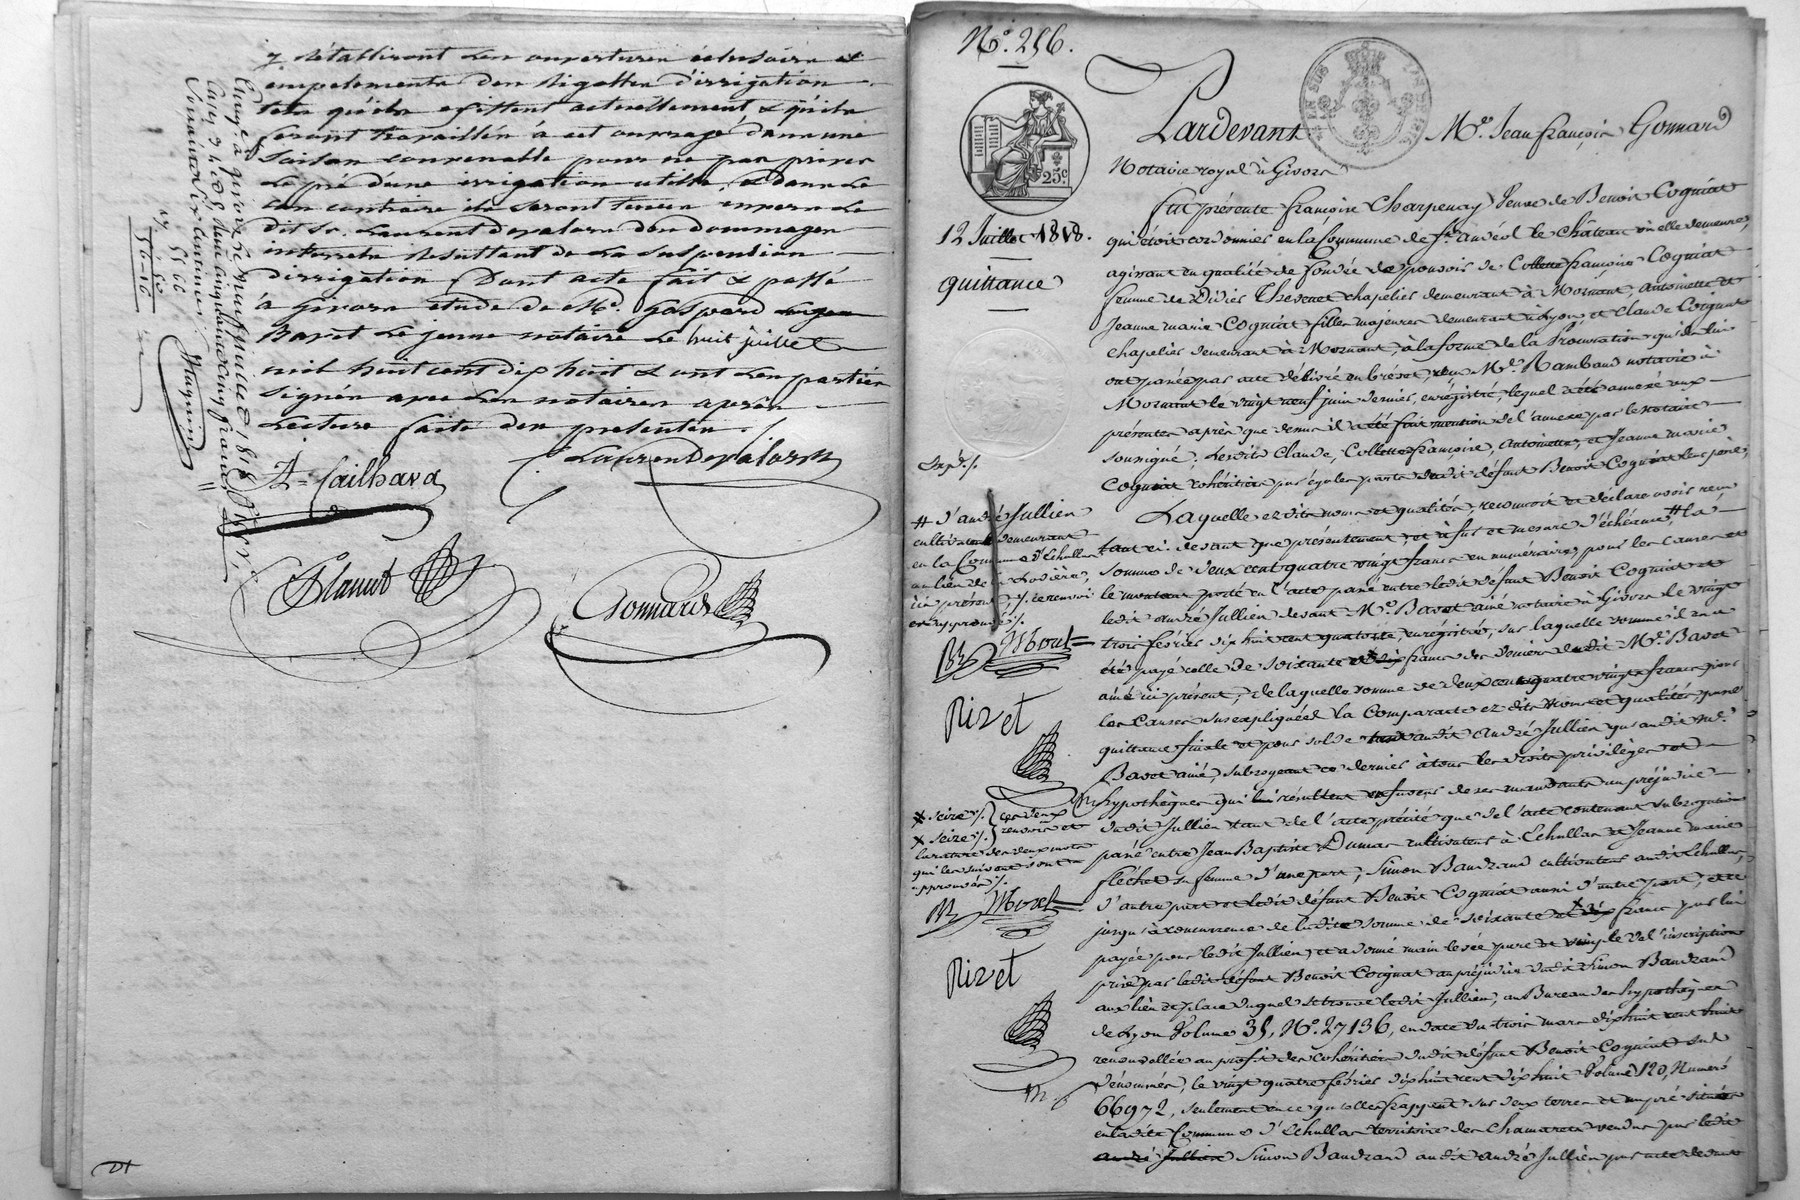 y rétabliront les ouvertures éclusoires et
empelements des rigolles d'irrigation
tels qu'ils existent actuellement & qu'ils
seront travaillés à cet ouvrage dans une
saison convenable pour ne pas priver
le pré d'une irrigation utile, & dans le
cas contraire ils seront tenus envers le
dit Sr. Laurent Depalorn des dommages
interrets résultant de la suspension
d'irrigation. Dont acte fait & passé
à Givors étude de Me. Gaspard
Bavet le jeune notaire le huit juillet
mil huit cent dix huit & ont les parties
signées avec les notaires après
lecture faite des présentes.
A = Cailhava
Laurent
Gonnard
Enreg. à Givors le neuf juillet 1818
N°. 256.
25c
12 Juillet 1818.
quittance
Pardevant Me. Jean françois Gonnard
Notaire royal à Givors
fut présente françoise Charpenay veuve de Benoit Cognat
qui étoit cordonnier en la Commune de St. andéol le Château où elle demeure,
agissant en qualité de fondée de pouvoir de Collette françoise Cognat
femme de Didier Thevenet chapelier demeurant à Mornant, antoinette et
Jeanne marie Cognat filles majeures demeurant à Lyon, et Claude Cognat
chapelier demeurant à Mornant, à la forme de la Procuration qu'ils lui
ont passée par acte délivré en brevet, reçu Me. Rambaud notaire à
Mornant le vingt neuf juin dernier, enregistré, lequel a été annexé aux
présentes après que dessus il a été fait mention de l'annexe par le Notaire
soussigné; lesdits Claude, Collette françoise, Antoinette, et Jeanne marie
Cognat cohéritiers par égales parts dudit défunt Benoit Cognat leur père,
Laquelle ez dits noms et qualités, reconnoit et déclare avoir reçu
# d'andré Jullien
cultivateur demeurant
en la Commune d'Echallas
au lieu de la Rodière,
ici présent, ./. ce renvoi
est approuvé ./.
tant ci-devant que présentement et à fur et mesure d'échéance, # la
somme de deux cent quatre vingt francs en numéraire, pour les causes et
le montant porté en l'acte passé entre ledit défunt Benoit Cognat et
ledit andré Jullien devant Me. Bavet ainé notaire à Givors le vingt
trois février dix huit cent quatorze, enregistré, sur laquelle somme il en a
été payé celle de soixante et dix francs des deniers dudit Me. Bavet
ainé ici présent, de laquelle somme de deux cent quatre vingts francs pour
les causes susexpliquées la Comparante ez dits noms et qualités, passe
quittance finale et pour solde tant audit andré Jullien qu'audit Me.
Bavet ainé, subrogeant ce dernier à tous les droits privilèges et
hypothèques qui lui résultent en faveur de ses mandants au préjudice
dudit Jullien tant de l'acte précité que de l'acte contenant subrogation
passé entre Jean Baptiste Dumas cultivateur à Echallas et Jeanne marie
fléchet sa femme d'une part, Simon Baudrand cultivateur audit Echallas,
d'autre part et ledit défunt Benoit Cognat aussi d'autre part, cette
jusqu'à concurrence de ladite somme de soixante et dix francs par lui
payée pour ledit Jullien, et a donné main levée pure et simple de l'inscription
prise par ledit défunt Benoit Cognat au préjudice dudit Simon Baudrand
aux lieu et place duquel se trouve ledit Jullien, au Bureau des hypothèques
de Lyon Volume 35, No. 27136, en date du trois mars dix huit cent huit
renouvellée au profit des cohéritiers dudit défunt Benoit Cognat sus
dénommés, le vingt quatre février dix huit cent dix huit Volume 120, Numéro
66972, seulement en ce qu'elles frappent sur deux terres et un pré situés
en ladite Commune d'Echallas territoire des Chamarets vendus par ledit
andré Jullien Simon Baudrand audit andré Jullien par acte devant
Morel
Rivet
x seize ./. } ces deux
x seize ./. } renvois et
la rature des deux mots
qui les suivent sont
approuvés ./.
Morel
Rivet